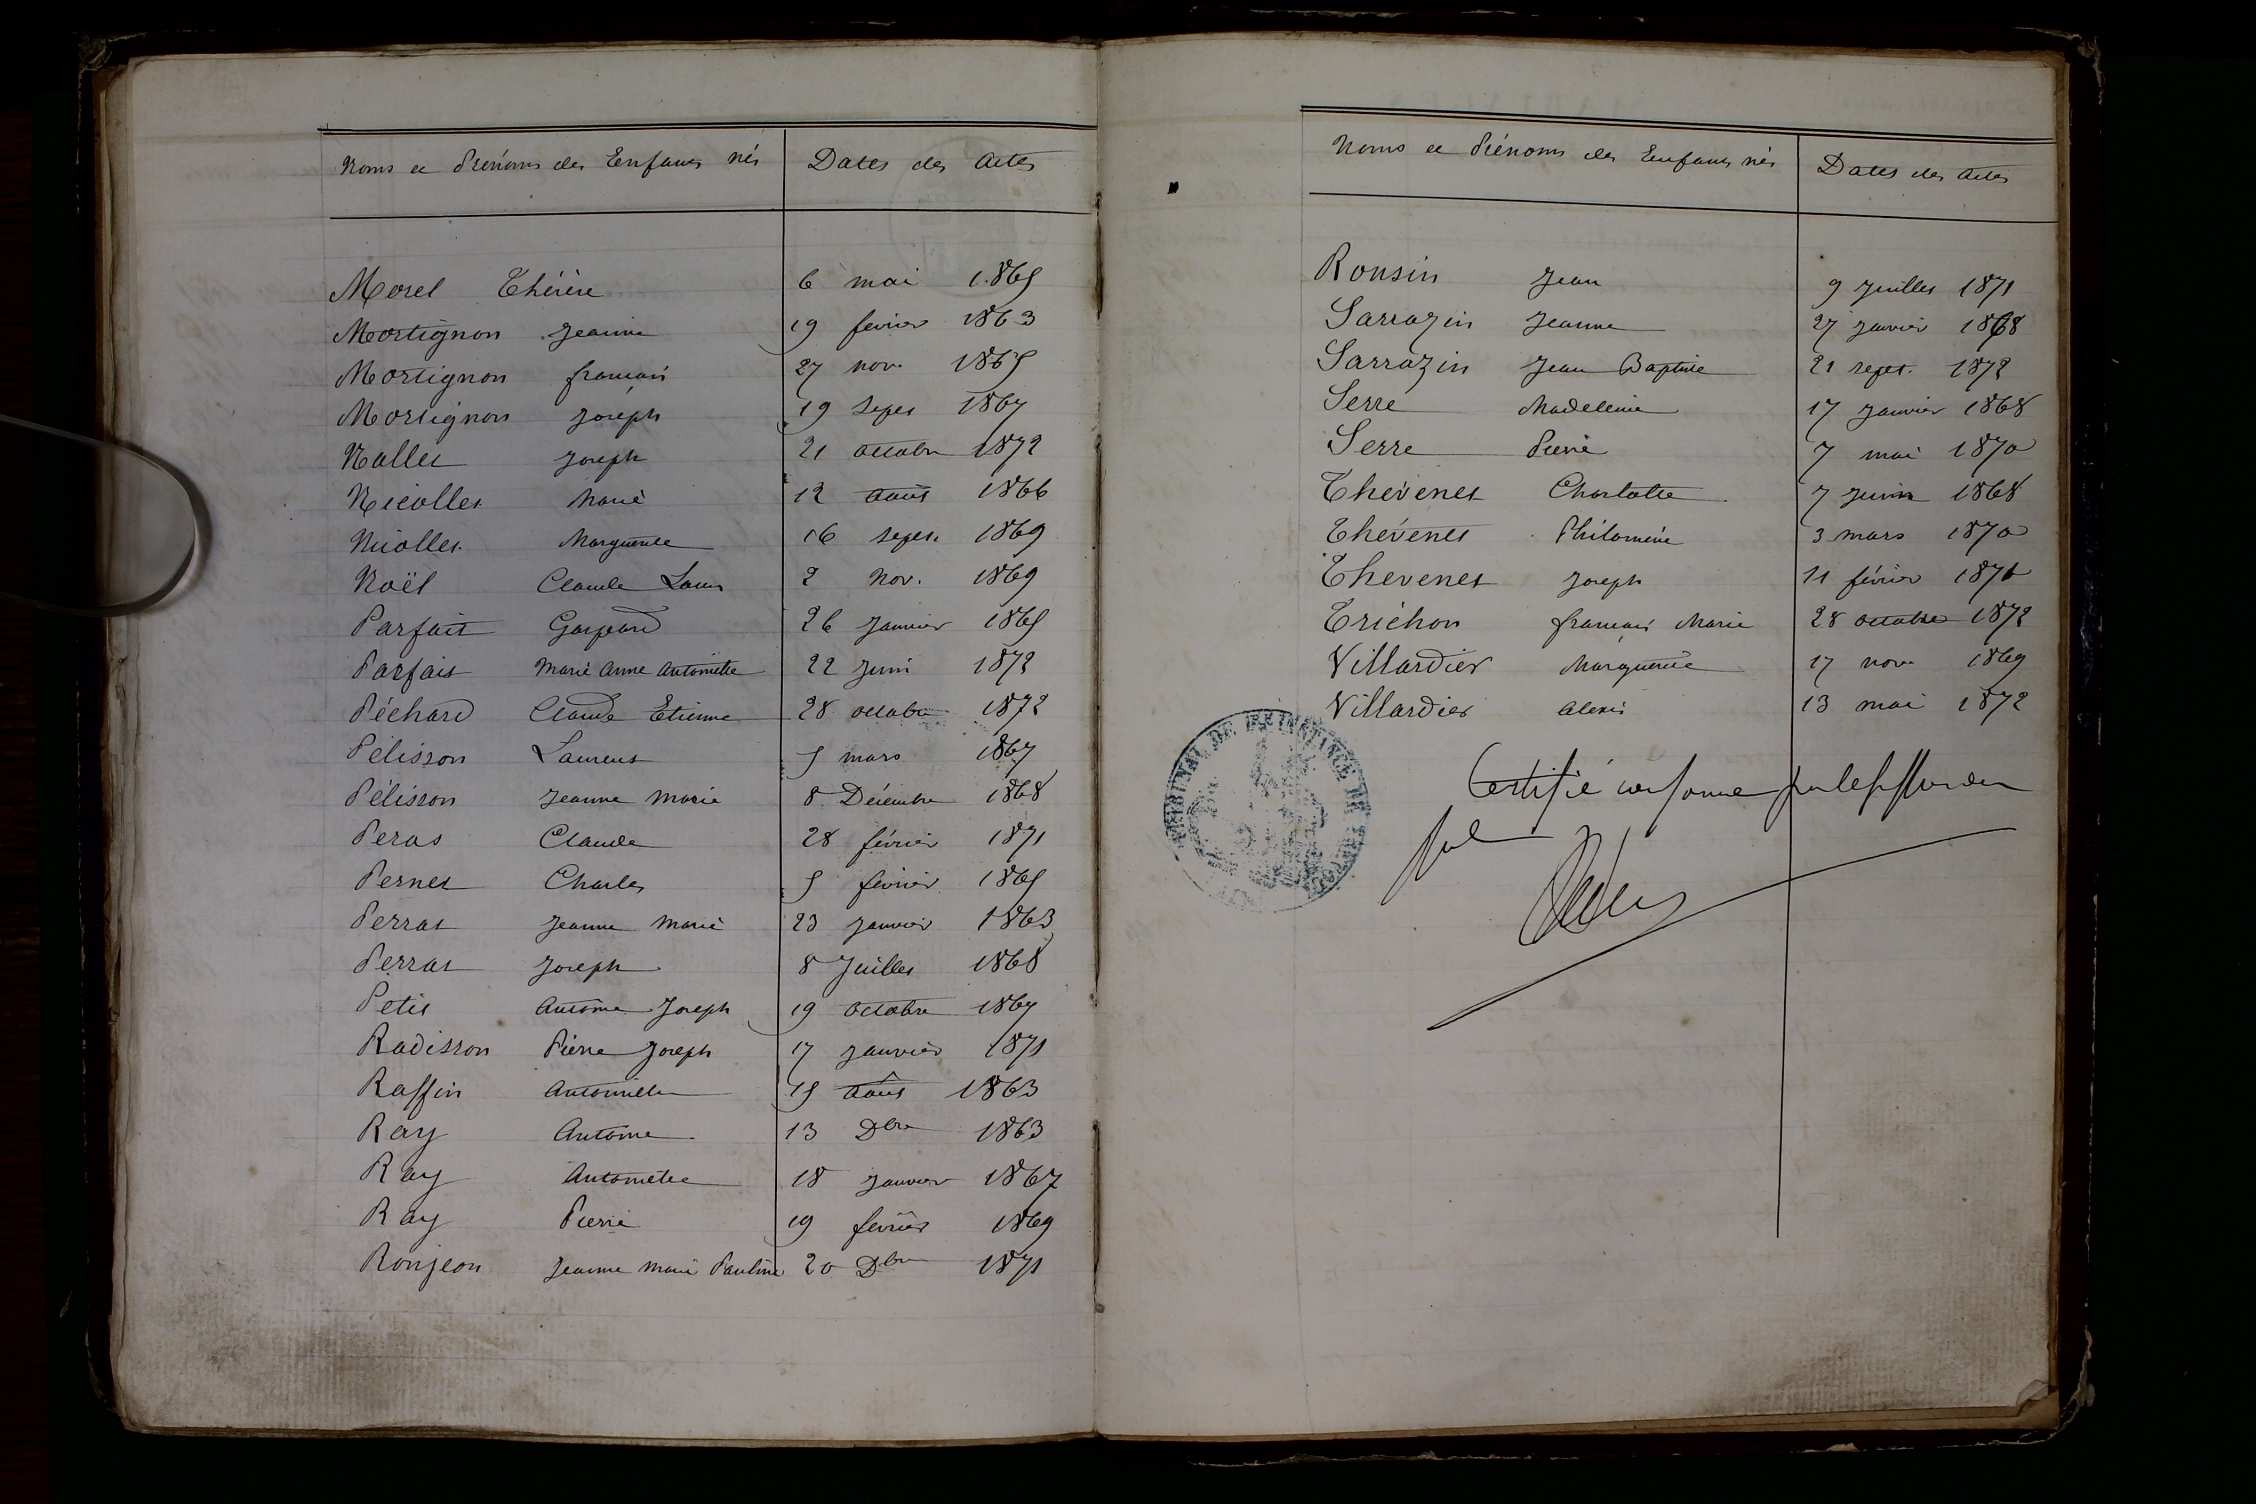 Noms et Prénoms des Enfants nés Dates des Actes
Morel Thérèse 6 mai 1865
Mortignon Jeanne 19 fevrier 1863
Mortignon francois 27 nov. 1865
Mortignon Joseph 19 Sept 1867
Nallet Joseph 21 octobre 1872
Nicollet Marie 12 août 1866
Nicollet Marguerite 16 sept. 1869
Noël Claude Louis 2 Nov. 1869
Parfait Gaspard 26 Janvier 1865
Parfait Marie Anne Antoinette 22 Juin 1872
Péchard Claude Etienne 28 octobre 1872
Pélisson Laurent 5 mars 1867
Pélisson Jeanne Marie 8 Décembre 1868
Peras Claude 28 février 1871
Pernet Charles 5 février 1865
Perrat Jeanne Marie 23 Janvier 1863
Perrat Joseph 8 Juillet 1868
Petit Antoine Joseph 19 octobre 1867
Radisson Pierre Joseph 17 Janvier 1871
Raffin Antoinette 15 août 1863
Ray Antoine 13 Dbre 1863
Ray Antoinette 18 Janvier 1867
Ray Pierre 19 fevrier 1869
Ronjeon Jeanne Marie Pauline 20 Dbre 1871
Noms et Prénoms des Enfants nés Dates des Actes
Ronsin Jean 9 Juillet 1871
Sarrazin Jeanne 27 Janvier 1868
Sarrazin Jean Baptiste 21 sept. 1872
Serre Madeleine 17 Janvier 1868
Serre Pierre 7 mai 1870
Thévenet Charlotte 7 Juin 1868
Thévenet Philomène 3 mars 1870
Thevenet Joseph 11 février 1871
Trichon francois Marie 28 octobre 1872
Villardier Marguerite 17 nov. 1869
Villardier Alexis 13 mai 1872
TRIBUNAL DE 1RE INSTANCE DE
Certifié conforme par le